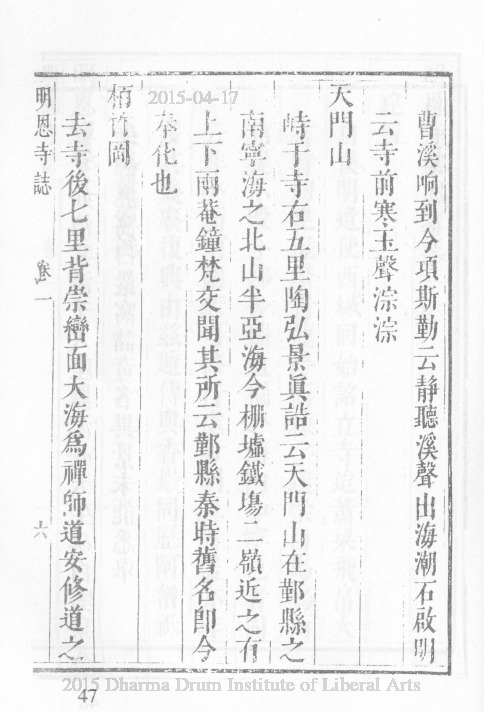 曹溪响到今項斯勒云靜聽溪聲出海潮石啟明
云寺前寒玉聲淙淙
天門山
峙于寺右五里陶弘景眞誥云天門山在鄞縣之
南寧海之北山半亞海今棚墟鐵塲二嶺近之有
上下兩菴鐘梵交聞其所云鄞縣秦時舊名卽今
奉化也
栢竹岡
去寺後七里背崇巒面大海爲禪師道安修道之
明恩寺誌
卷一
六
2015-04-17
2015 Dharma Drum Institute of Liberal Arts
47